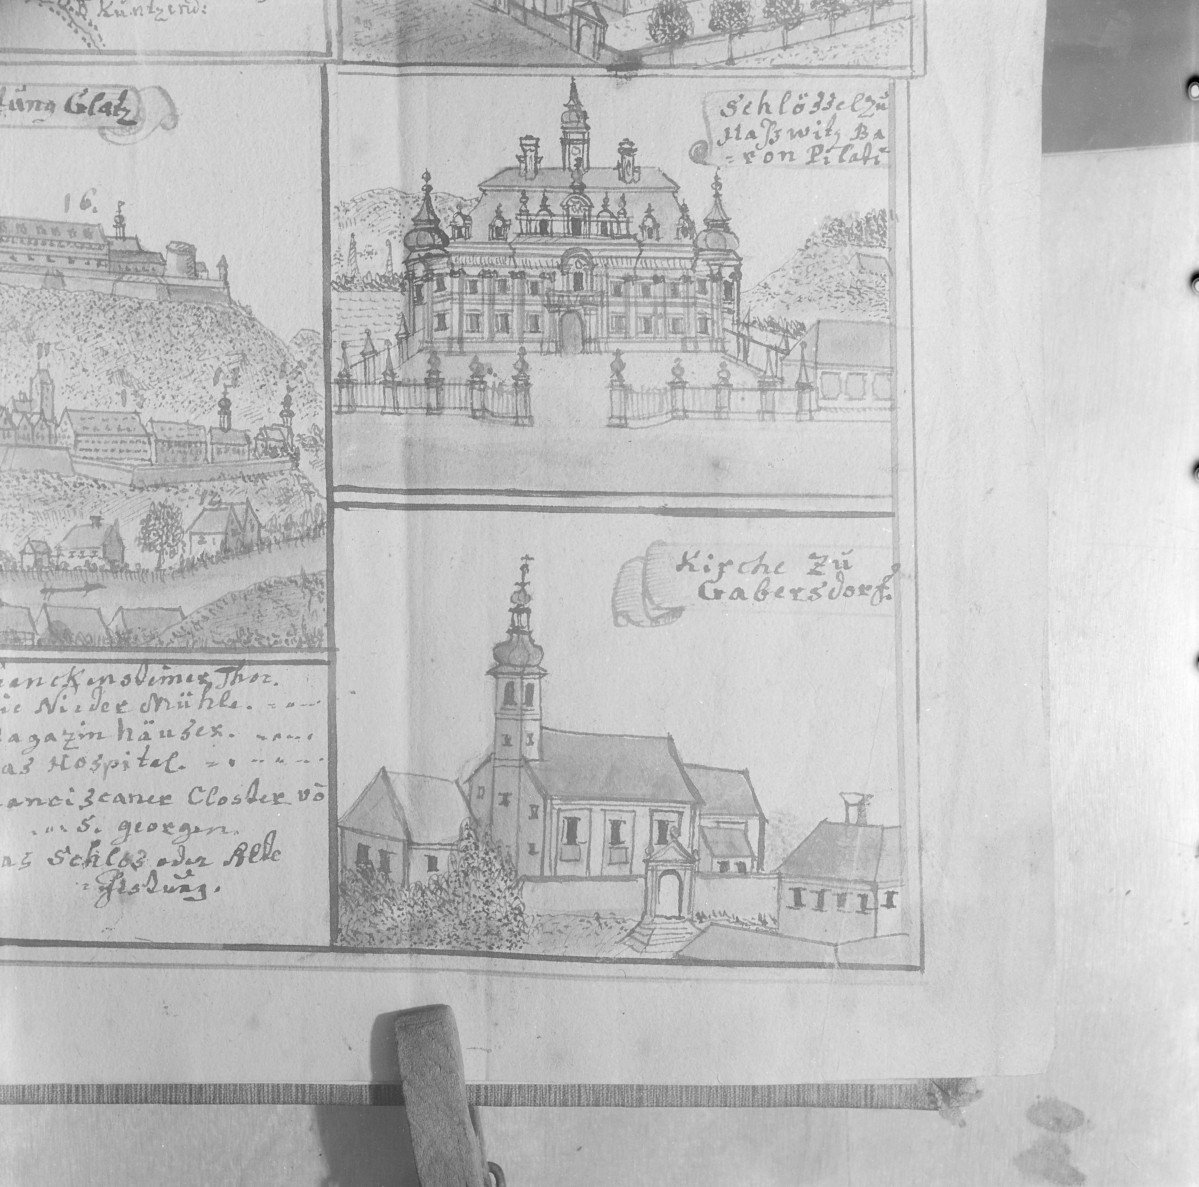 Kuntzend:
tung Glatz
16.
Schlössel zu
Haßwitz Ba
=ron Pilati
12
Kirche zu
Gabersdorf.
renckensteiner Thor.
ie Nieder Mühle.
agazin häuser.
as Hospital.
anciscaner Closter vō
S. georgen.
as Schlos oder Alte
Festung.